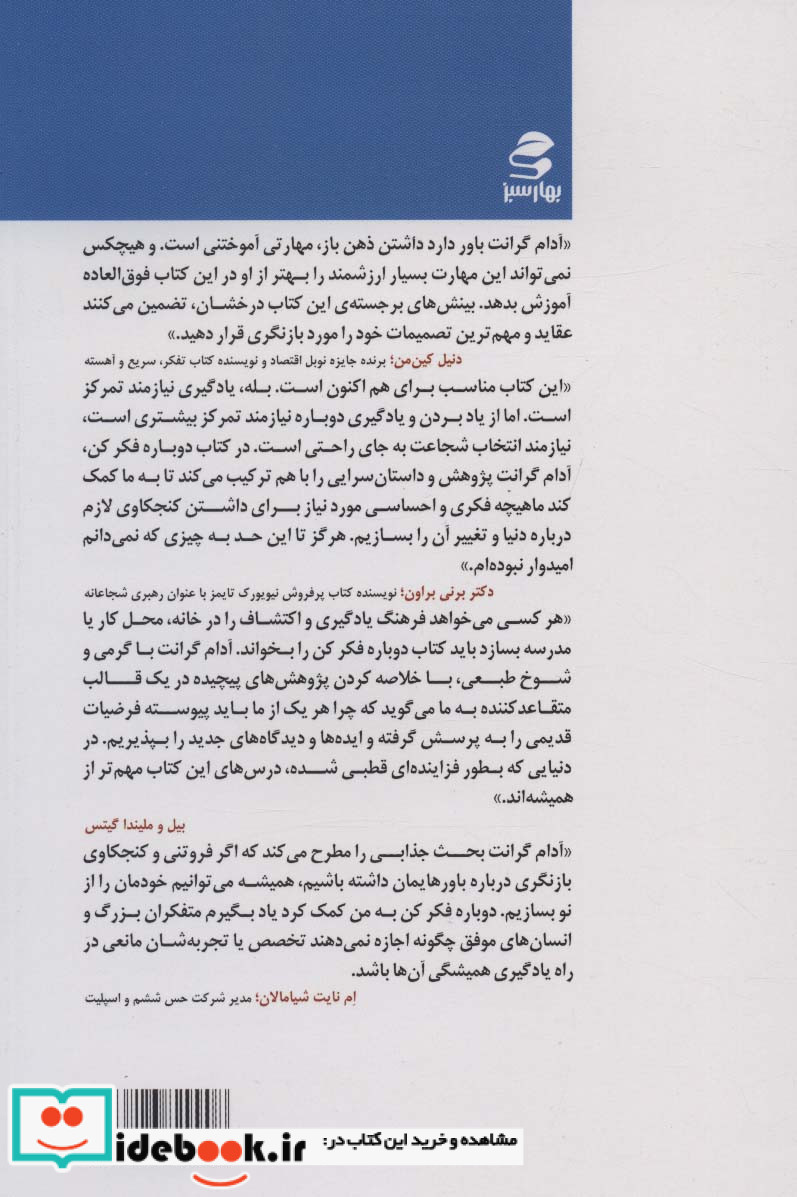 بهار سبز
«آدام گرانت باور دارد داشتن ذهن باز، مهارتی آموختنی است. و هیچکس
نمی‌تواند این مهارت بسیار ارزشمند را بهتر از او در این کتاب فوق‌العاده
آموزش بدهد. بینش‌های برجسته‌ی این کتاب درخشان، تضمین می‌کنند
عقاید و مهم‌ترین تصمیمات خود را مورد بازنگری قرار دهید.»
دنیل کین‌من؛ برنده جایزه نوبل اقتصاد و نویسنده کتاب تفکر، سریع و آهسته
«این کتاب مناسب برای هم اکنون است. بله، یادگیری نیازمند تمرکز
است. اما از یاد بردن و یادگیری دوباره نیازمند تمرکز بیشتری است،
نیازمند انتخاب شجاعت به جای راحتی است. در کتاب دوباره فکر کن،
آدام گرانت پژوهش و داستان‌سرایی را با هم ترکیب می‌کند تا به ما کمک
کند ماهیچه فکری و احساسی مورد نیاز برای داشتن کنجکاوی لازم
درباره دنیا و تغییر آن را بسازیم. هرگز تا این حد به چیزی که نمی‌دانم
امیدوار نبوده‌ام.»
دکتر برنی براون؛ نویسنده کتاب پرفروش نیویورک تایمز با عنوان رهبری شجاعانه
«هر کسی می‌خواهد فرهنگ یادگیری و اکتشاف را در خانه، محل کار یا
مدرسه بسازد باید کتاب دوباره فکر کن را بخواند. آدام گرانت با گرمی و
شوخ طبعی، با خلاصه کردن پژوهش‌های پیچیده در یک قالب
متقاعدکننده به ما می‌گوید که چرا هر یک از ما باید پیوسته فرضیات
قدیمی را به پرسش گرفته و ایده‌ها و دیدگاه‌های جدید را بپذیریم. در
دنیایی که بطور فزاینده‌ای قطبی شده، درس‌های این کتاب مهم‌تر از
همیشه‌اند.»
بیل و ملیندا گیتس
«آدام گرانت بحث جذابی را مطرح می‌کند که اگر فروتنی و کنجکاوی
بازنگری درباره باورهایمان داشته باشیم، همیشه می‌توانیم خودمان را از
نو بسازیم. دوباره فکر کن به من کمک کرد یاد بگیرم متفکران بزرگ و
انسان‌های موفق چگونه اجازه نمی‌دهند تخصص یا تجربه‌شان مانعی در
راه یادگیری همیشگی آن‌ها باشد.
اِم نایت شیامالان؛ مدیر شرکت حس ششم و اسپلیت
مشاهده و خرید این کتاب در:
idebook.ir